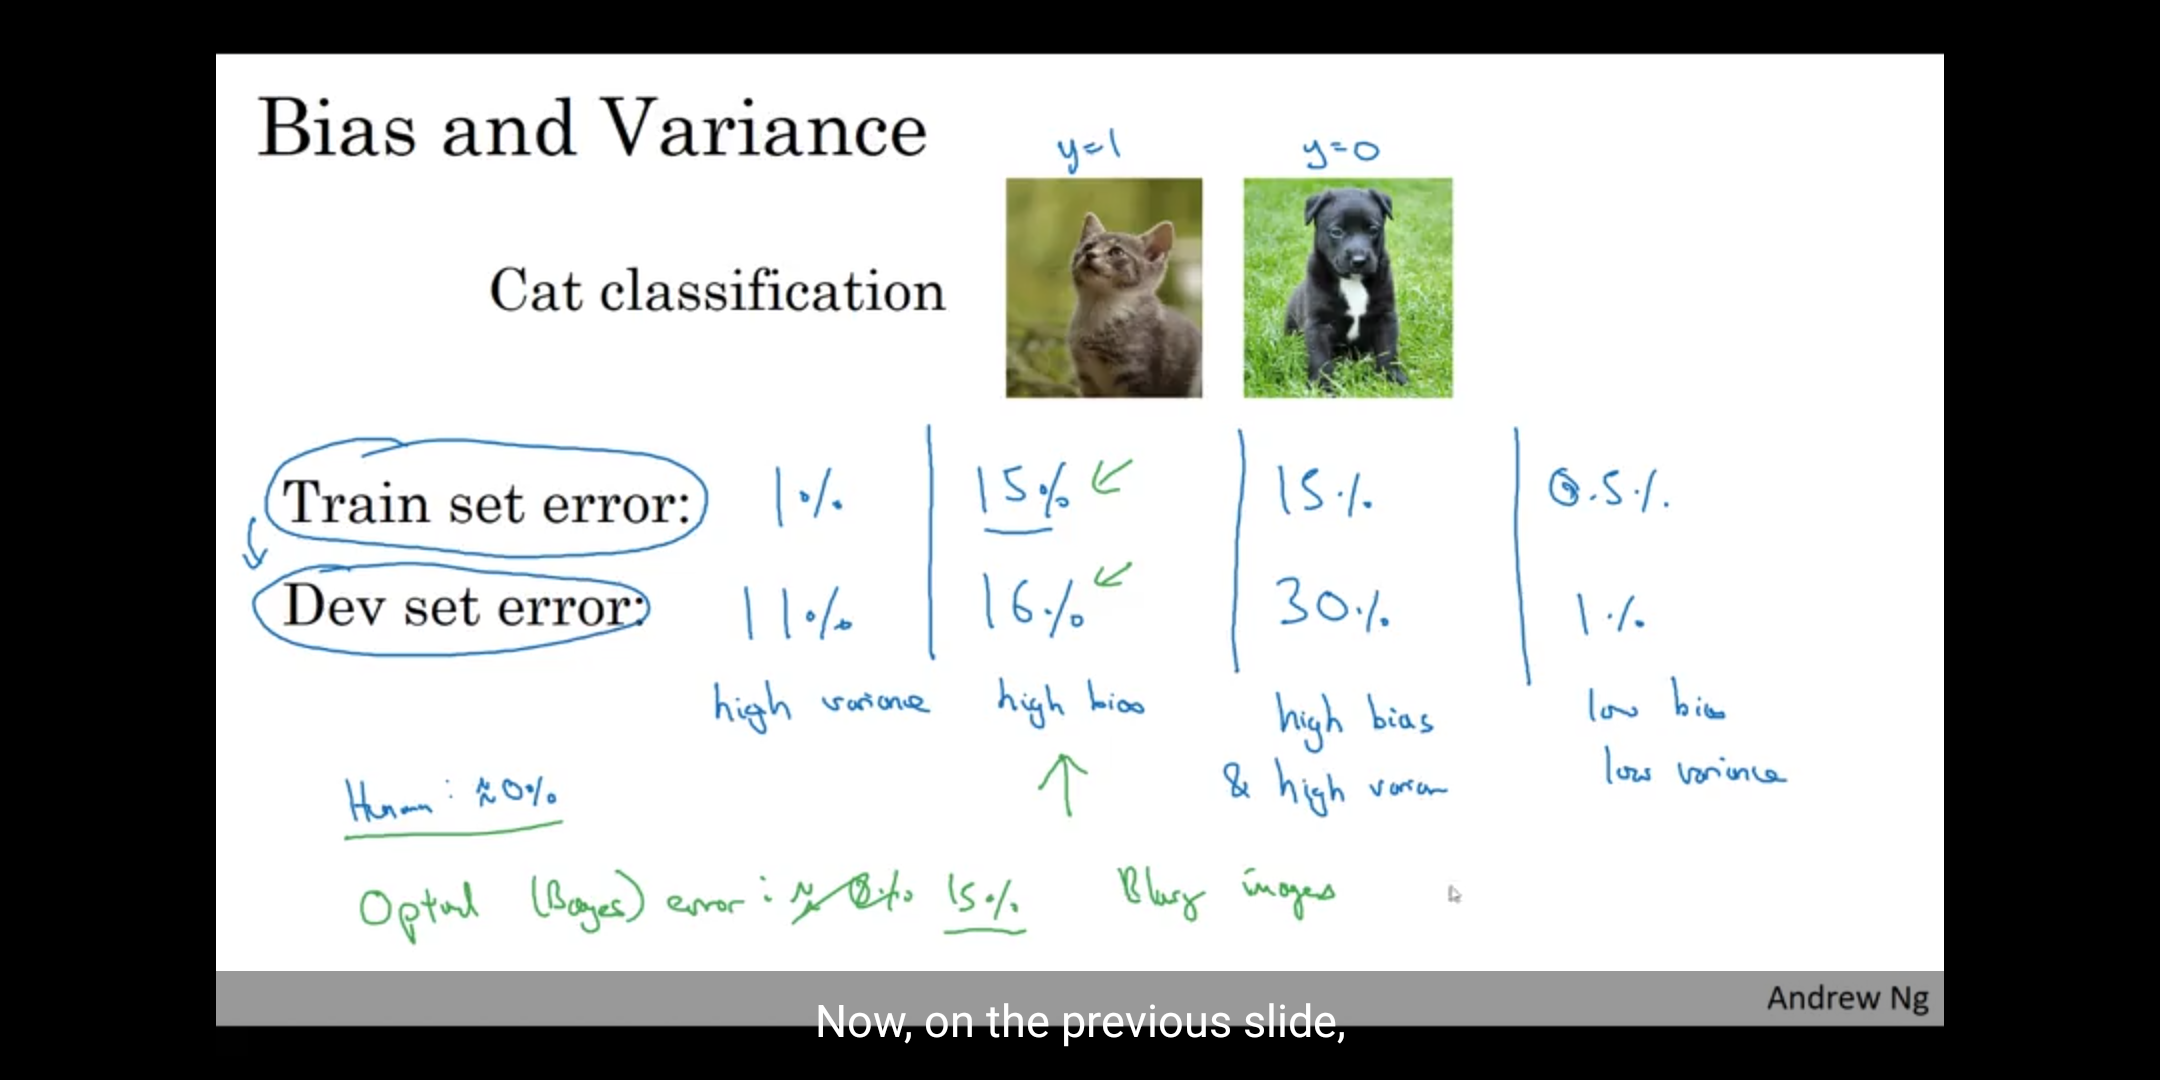 Bias and Variance
y=1 y=0
Cat classification
Train set error: 1% 15% 15% 0.5%
Dev set error: 11% 16% 30% 1%
high variance high bias high bias low bias
& high varian low variance
Human: ≈0%
Optimal (Bayes) error: ≈ 0% 15% Blurry images
Andrew Ng
Now, on the previous slide,